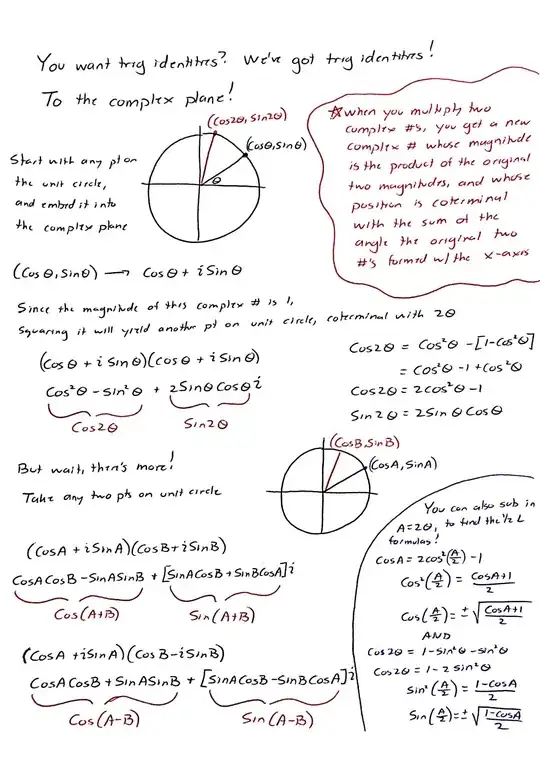 You want trig identities? We've got trig identities!
To the complex plane!
(Cos2θ, Sin2θ)
(Cosθ, Sinθ)
θ
Start with any pt on
the unit circle,
and embed it into
the complex plane
☆When you multiply two
complex #'s, you get a new
complex # whose magnitude
is the product of the original
two magnitudes, and whose
position is coterminal
with the sum of the
angle the original two
#'s formed w/ the x-axis
(Cosθ, Sinθ) → Cosθ + i Sinθ
Since the magnitude of this complex # is 1,
Squaring it will yield another pt on unit circle, coterminal with 2θ
(Cosθ + i Sinθ)(cosθ + i Sinθ)
Cos²θ - Sin²θ + 2Sinθ Cosθ i
Cos2θ Sin2θ
Cos2θ = Cos²θ - [1-Cos²θ]
= Cos²θ - 1 + Cos²θ
Cos2θ = 2cos²θ - 1
Sin2θ = 2Sinθ Cosθ
But wait, there's more!
Take any two pts on unit circle
(CosB, SinB)
(CosA, SinA)
(CosA + i SinA)(CosB + i SinB)
CosA CosB - SinA SinB + [SinA CosB + SinB CosA] i
Cos(A+B) Sin(A+B)
(CosA + i SinA)(CosB - i SinB)
CosA CosB + SinA SinB + [SinA CosB - SinB CosA] i
Cos(A-B) Sin(A-B)
You can also sub in
A=2θ, to find the ½ ∠
formulas!
CosA = 2cos²(A/2) - 1
Cos²(A/2) = CosA+1/2
Cos(A/2) = ±√CosA+1/2
AND
Cos2θ = 1 - Sin²θ - Sin²θ
Cos2θ = 1 - 2 Sin²θ
Sin²(A/2) = 1-CosA/2
Sin(A/2) = ±√1-CosA/2